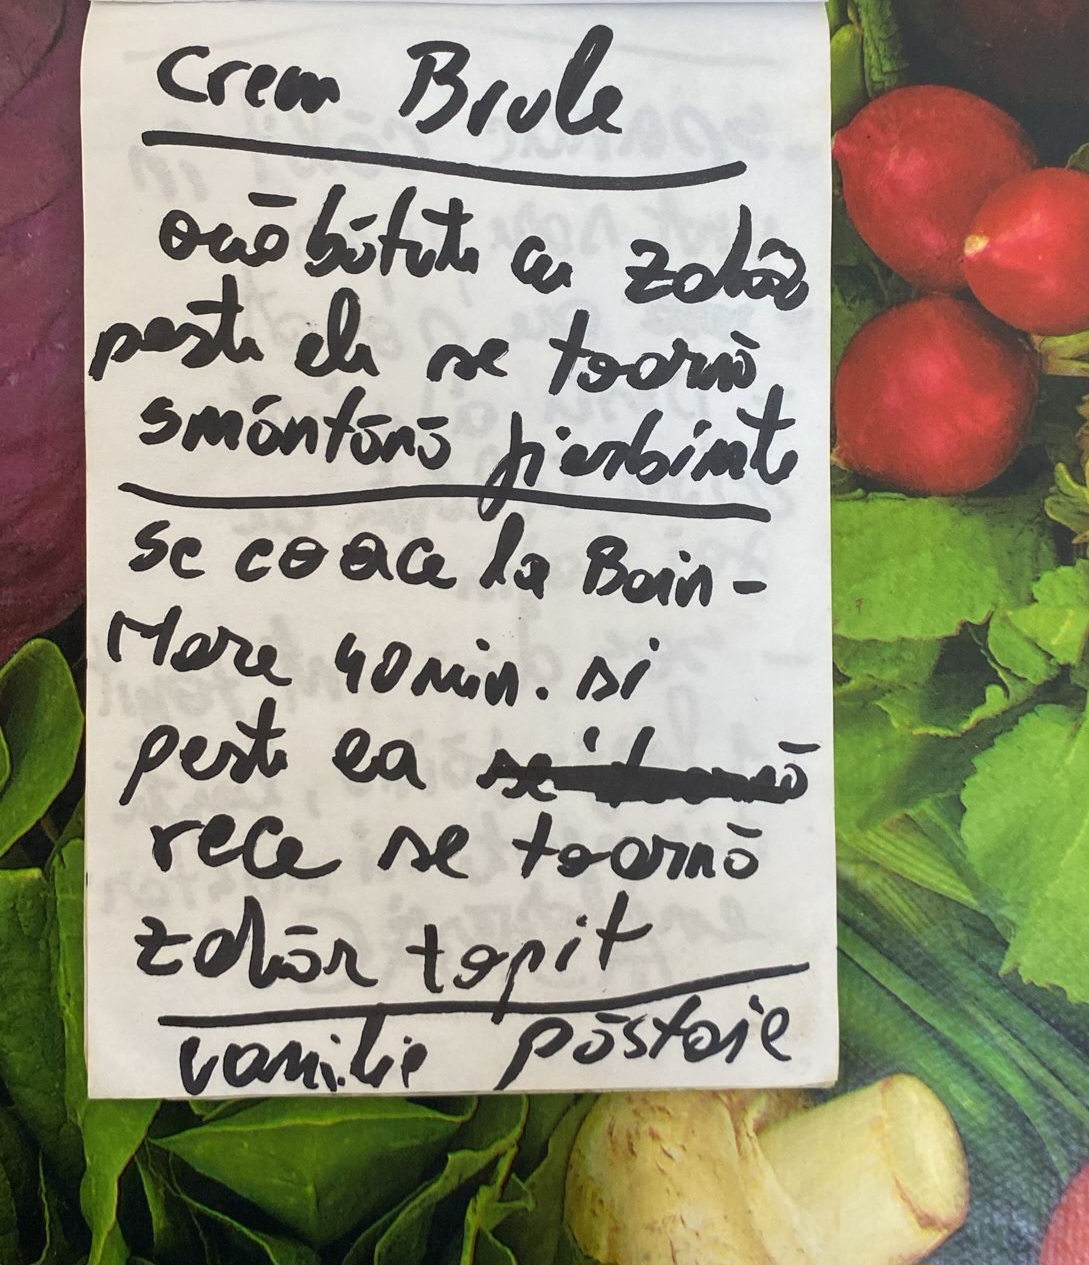 Crem Brule
ouā bātute cu zahār
peste ele se toarnā
smāntānā fierbinte
se coace la Bain-
Mare 40 min. si
peste ea
rece se toarnā
zahār topit
vanilie pāstaie